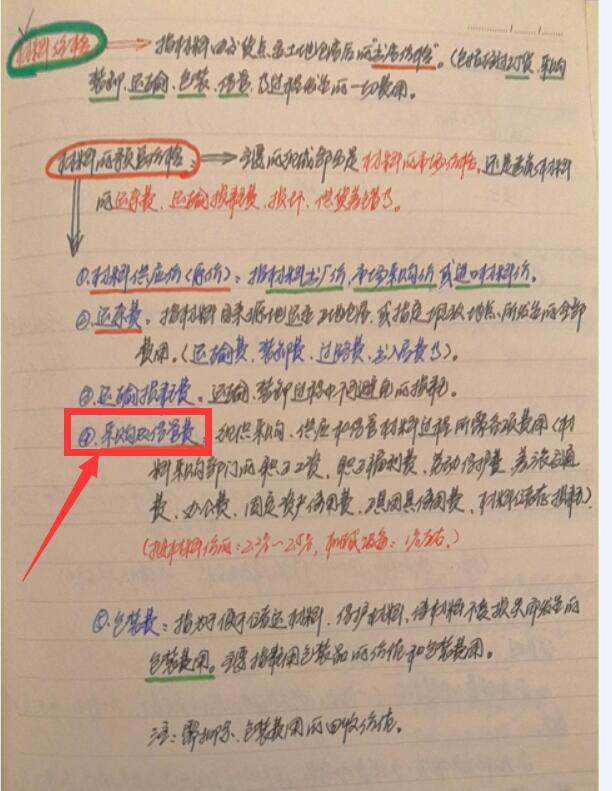 材料价格 指材料由交货点至工地仓库后的“出库价格”。(包括材料订货、采购
装卸、运输、包装、保管、等过程发生的一切费用。
材料的预算价格: 主要的组成部分是材料的市场价格,还是考虑材料
的运杂费、运输损耗费、损坏、供货差错等。
①.材料供应价(原价):指材料出厂价,市场采购价或进口材料价。
②.运杂费:指材料自来源地运至工地仓库,或指定堆放地点,所发生的全部
费用。(运输费、装卸费、过路费、出入库费等)。
③.运输损耗费:运输、装卸过程中不可避免的损耗。
④.采购及保管费:组织采购、供应和保管材料过程所需各项费用(材
料采购部门的职工工资、职工福利费、劳动保护费、差旅交通
费、办公费、固定资产使用费、工具用具使用费、材料储存损耗)。
⑤.包装费:指为了便于储运材料、保护材料、使材料不受损失而发生的
包装费用。主要指耗用包装品的价值和包装费用。
注:需扣除、包装费用的回收价值。